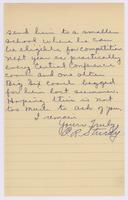 send him to a smaller
school where he can
be eligible for competition
next year as practically
every Central Conference
coach and one other
Big Six coach begged
for him last summer.
Hoping this is not
too much to ask of you,
I remain
Yours Truly,
R. Sturdy